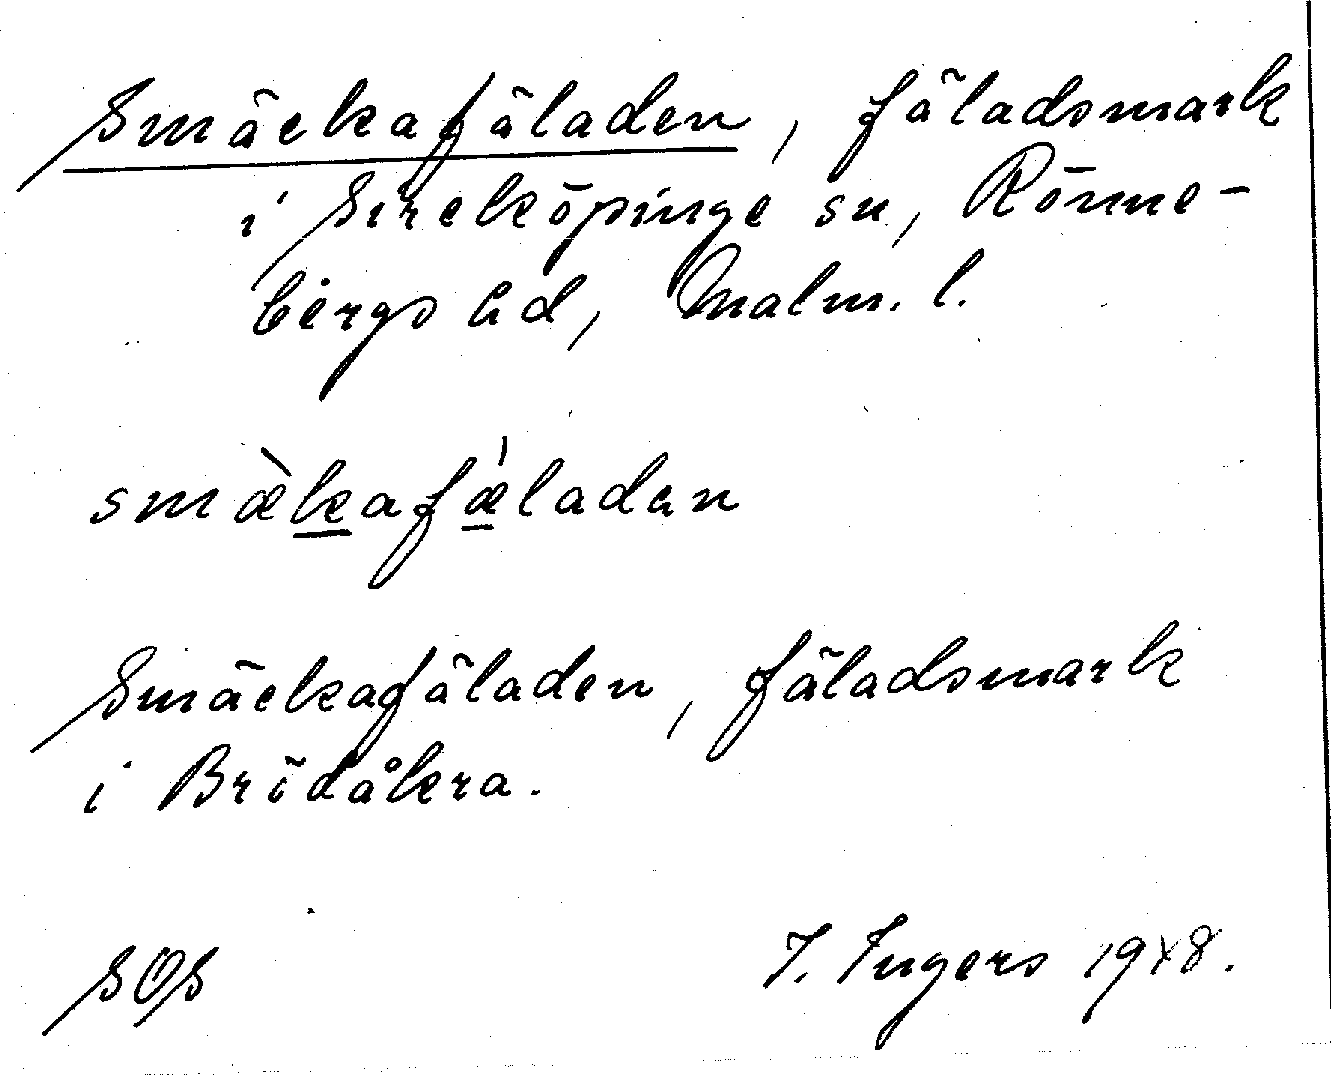 Smäckafäladen, fäladsmark
i Sireköpinge sn, Rönne-
bergs hd, Malm. l.
smæ̀kafæ̍laden
Smäckafäladen, fäladsmark
i Brödåkra.
SOS
I. Ingers 1948.